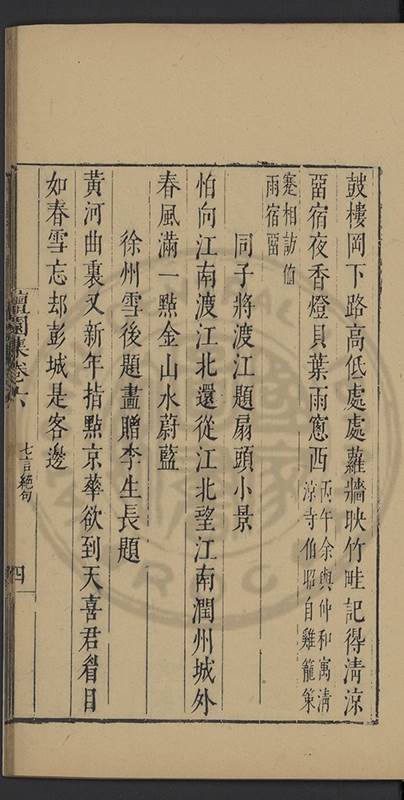 鼓樓岡下路高低處處蘿牆映竹畦記得清涼
畱宿夜香燈貝葉雨窻西
丙午余與仲和寓清
涼寺伯昭自雞籠策
蹇相訪值
雨宿畱
同子將渡江題扇頭小景
怕向江南渡江北還從江北望江南潤州城外
春風滿一點金山水蔚藍
徐州雪後題畫贈李生長題
黃河曲裏又新年指點京華欲到天喜君眉目
如春雪忘却彭城是客邊
檀園集卷之六
七言絕句
四